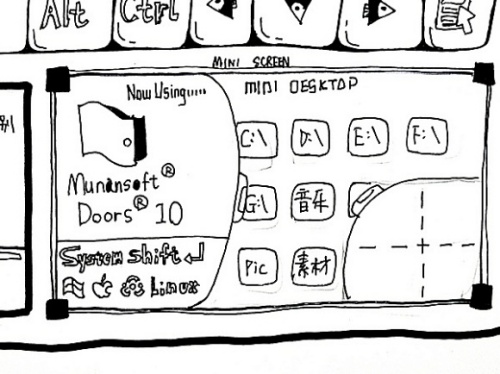 Alt
Ctrl
MINI SCREEN
Now Using......
MINI DESKTOP
C:\
D:\
E:\
F:\
Munansoft®
Doors® 10
G:\
音乐
System Shift
Linux
Pic
素材